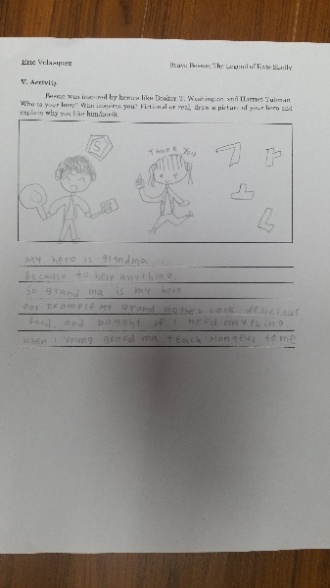 Eric Velasquez
Brave Bessie, The Legend of Kate Shelly
V. Activity
Bessie was inspired by heroes like Booker T. Washington and Harriet Tubman.
Who is your hero? Who inspires you? Fictional or real, draw a picture of your hero and
explain why you like him/her.
Thank You
ㄱ ㅏ
ㅗ ㄴ
My hero is grandma
Because to help anything.
So grand ma is my hero
For Example my grand mother cook delicious
food and bought if I need anything.
when I young grand ma teach Hangeul to me